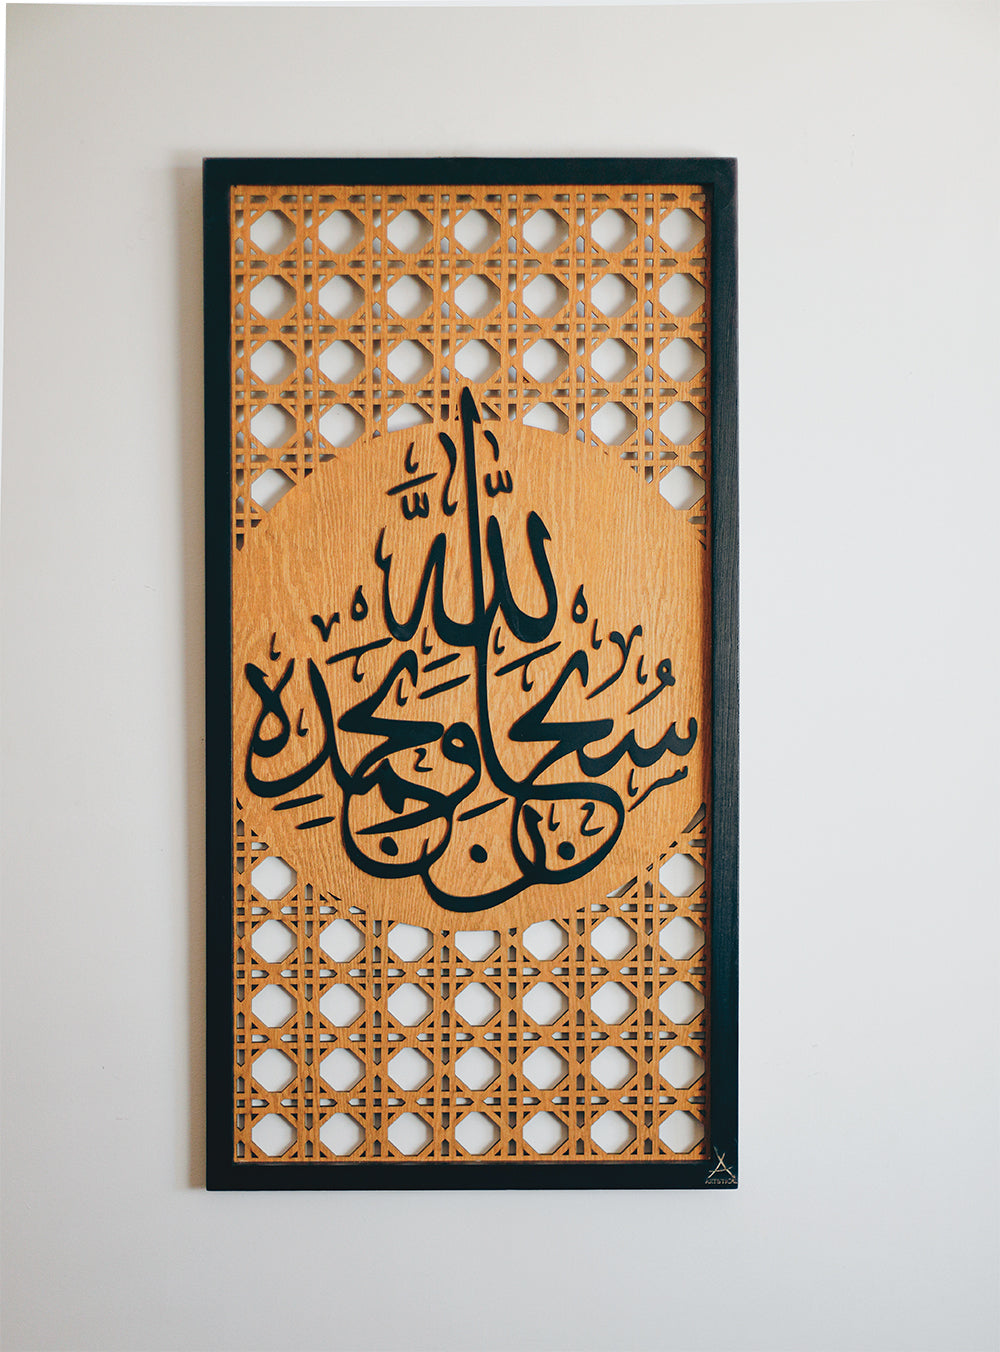 سُبْحَانَ اللَّهِ وَبِحَمْدِهِ
ARTISTICA